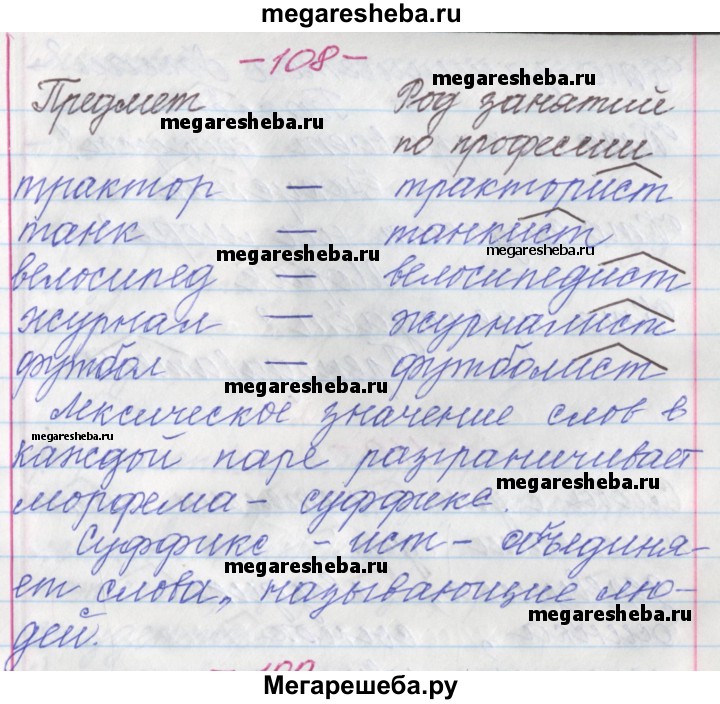 megaresheba.ru
-108-
Предмет Род занятий
megaresheba.ru
megaresheba.ru
по профессии
трактор — тракторист
танк — танкист
megaresheba.ru
megaresheba.ru
велосипед — велосипедист
журнал — журналист
футбол — футболист
megaresheba.ru
Лексическое значение слов в
megaresheba.ru
каждой паре разграничивает
megaresheba.ru
морфема - суффикс.
Суффикс -ист- объединя-
megaresheba.ru
ет слова, называющие лю-
megaresheba.ru
дей.
Мегарешеба.ру